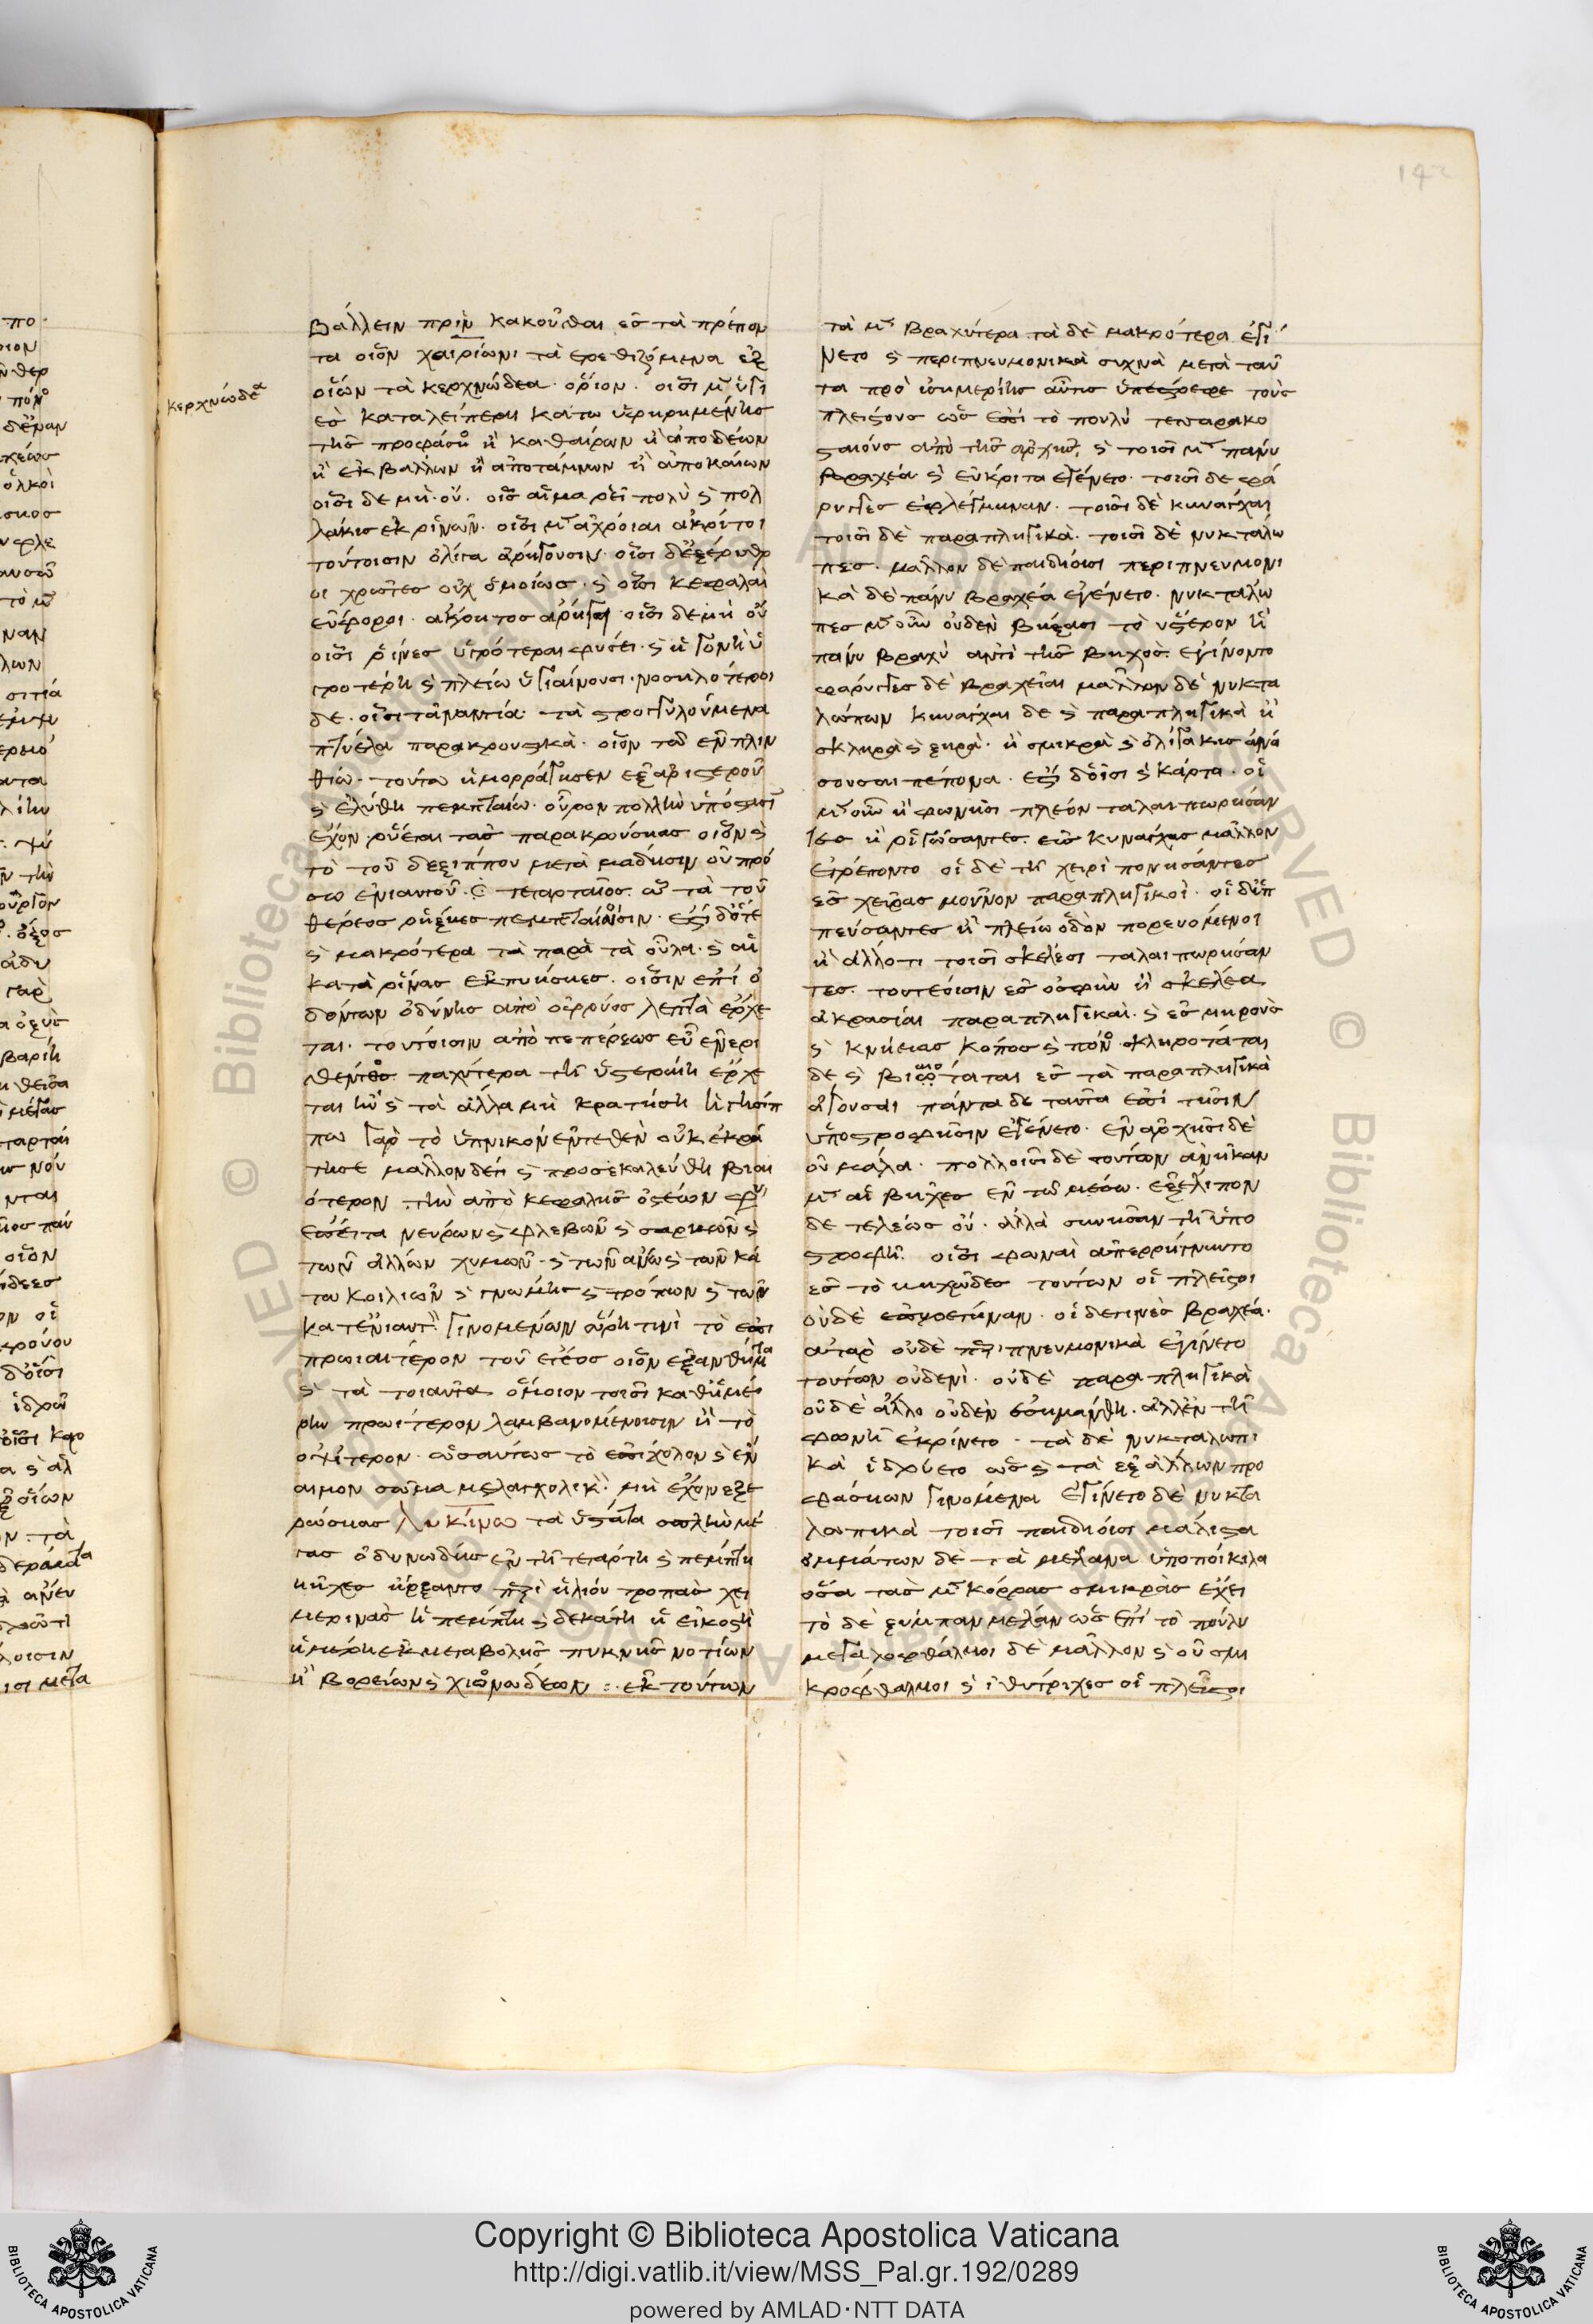 142
κερχνώδεα
βάλλειν πρὶν κακοῦσθαι ἐς τὰ πρέπον
τα οἷον χαιρίωνι τὰ ἐρεθιζόμενα ἐξ
οἵων τὰ κερχνώδεα. ὅριον. οἷσι μὲν ὑγι
ἐς καταλείπεται κάτω ὑφῃρημένης
τῆς προφάσιος ἢ καθαίρων ἢ ἀποδέων
ἢ ἐκβάλλων ἢ ἀποτάμνων ἢ ἀποκαίων
οἷσι δὲ μὴ. οὔ. οἷς αἷμα ῥεῖ πολὺ καὶ πολ
λάκις ἐκ ῥινῶν. οἷσι μὲν ἀχρόιαι ἄκρητοι
τούτοισιν ὀλίγα ἀρήγουσιν. οἷσι δ' ἐξέρυθρ
οι χρῶτες οὐχ ὁμοίως. καὶ οἷσι κεφαλαὶ
εὔφοροι. ἄκρητος ἀρήγει. οἷσι δὲ μὴ οὔ
οἷσι ῥῖνες ὑγρότεραι φύσει. καὶ ἡ γονὴ ὑ
γροτέρη καὶ πλείω ὑγιαίνουσι. νοσηλότεροι
δὲ. οἷσι τἀναντία. τὰ στρογγυλούμενα
πτύελα παρακρουστικὰ. οἷον τῶ ἐν πλιν
θίω. τούτω ἡμορράγησεν ἐξ ἀριστεροῦ
καὶ ἐλύθη πεμπταίω. οὖρον πολλὴν ὑπόστασιν
ἔχον ῥύεται τὰς παρακρούσιας οἷον καὶ
τὸ τοῦ δεξίππου μετὰ μάδησιν οὗ πρό
σω ἐνιαυτοῦ. τεταρταῖος. ὧ τὰ τοῦ
θέρεος ῥήξιες πεμπταίοισιν. ἔστι δ' ὅτε
καὶ μακρότερα τὰ παρὰ τὰ οὖλα. καὶ αἱ
κατὰ ῥῖνας ἐκπυήσιες. οἷσιν ἐπὶ ὀ
δόντων ὀδύνης ἀπὸ ὀφρύος λεπτὰ ἔρχε
ται. τούτοισιν ἀπὸ πεπέρεως εὖ ἐνερι
θέντος παχύτερα τῆ ὑστεραίη ἔρχε
ται ἢν καὶ τὰ ἄλλα μὴ κρατήση
πω γὰρ τὸ ὑπνικὸν ἐντεθὲν οὐκ ἐκρά
τησε μᾶλλον δέ τι καὶ προσεκαλεύθη βιαι
ότερον. τὴν ἀπὸ κεφαλῆς ὀστέων φύσιν
ἔπειτα νεύρων καὶ φλεβῶν καὶ σαρκῶν καὶ
τῶν ἄλλων χυμῶν. καὶ τῶν ἄνω καὶ τῶν κά
τω κοιλιῶν καὶ γνώμης καὶ τρόπων καὶ τῶν
κατ' ἐνιαυτὸν γινομένων ὥρη τινὶ τὸ ἐπὶ
πρωιαίτερον τοῦ ἔτεος οἷον ἐξανθήματα
καὶ τὰ τοιαῦτα ὅμοιον τοῖσι καθ' ἡμέ
ρην πρωίτερον λαμβανομένοισιν ἢ τὸ
ὀψίτερον. ὡσαύτως τὸ ἐπίχολον καὶ ἔν
αιμον σῶμα μελαγχολικὸν μὴ ἔχον ἐξε
ρώσιας Λυκίνω τὰ ὕστατα σπλὴν μέ
γας ὀδυνώδης ἐν τῆ τετάρτη καὶ πέμπτη
βῆχες ἤρξαντο περὶ ἡλίου τροπὰς χει
μερινὰς ἢ πέμπτη καὶ δεκάτη ἢ εἰκοστὴ
ἡμέρη ἐκ μεταβολῆς πυκνῆς νοτίων
ἢ βορείων καὶ χιονωδέων :. ἐκ τούτων
τὰ μὲν βραχύτερα τὰ δὲ μακρότερα ἐγί
νετο καὶ περιπνευμονικὰ συχνὰ μετὰ ταῦ
τα πρὸ ἰσημερίης αὖτις ὑπέστρεφε τοὺς
πλείστους ὡς ἐπὶ τὸ πουλὺ τεσσαρακο
σταίους ἀπὸ τῆς ἀρχῆς, καὶ τοῖσι μὲν πάνυ
βραχέα καὶ εὔκριτα ἐγένετο. τοῖσι δὲ φά
ρυγγες ἐφλέγμηναν. τοῖσι δὲ κυνάγχαι
τοῖσι δὲ παραπληγικὰ. τοῖσι δὲ νυκτάλω
πες. μᾶλλον δὲ παιδίοισι περιπνευμονι
κὰ δὲ πάνυ βραχέα ἐγένετο. νυκτάλω
πες μὲν οὖν οὐδὲν βήξασι τὸ ὕστερον ἢ
πάνυ βραχὺ ἀντὶ τῆς βηχὸς. ἐγίνοντο
φάρυγγες δὲ βραχεῖαι μᾶλλον δὲ νυκτα
λώπων κυνάγχαι δὲ καὶ παραπληγικὰ ἢ
σκληρὰ καὶ ξηρὰ. ἢ σμικρὰ καὶ ὀλιγάκις ἀνά
γουσαι πέπονα. ἔστι δ' οἷσι καὶ κάρτα. οἱ
μὲν οὖν ἢ φωνῆσι πλέον ταλαιπωρήσαν
τες ἢ ῥιγώσαντες. ἐς κυνάγχας μᾶλλον
ἐτρέποντο οἱ δὲ τῆ χειρὶ πονήσαντες
ἐς χεῖρας μοῦνον παραπληγικοὶ. οἱ δ' ἱπ
πεύσαντες ἢ πλείω ὁδὸν πορευόμενοι
ἢ ἄλλο τι τοῖσι σκέλεσι ταλαιπωρήσαν
τες. τουτέοισιν ἐς ὀσφὺν ἢ σκέλεα
ἀκρασίαι παραπληγικαὶ. καὶ ἐς μηροὺς
καὶ κνήμας κόπος καὶ πόνος σκληρόταται
δὲ καὶ βιαιόταται ἐς τὰ παραπληγικὰ
ἄγουσαι πάντα δὲ ταῦτα ἐπὶ τῆσιν
ὑποστροφῆσιν ἐγένετο. ἐν ἀρχῆσι δὲ
οὐ μάλα. πολλοῖσι δὲ τούτων ἀνῆκαν
μὲν αἱ βῆχες ἐν τῶ μέσω. ἐξέλιπον
δὲ τελέως οὔ. ἀλλὰ συνῆσαν τῆ ὑπο
στροφῆ. οἷσι φωναὶ ἀπερρήγνυντο
ἐς τὸ βηχῶδες τούτων οἱ πλεῖστοι
οὐδὲ ἐπυρέτηναν. οἱ δέ τινες βραχέα.
ἀτὰρ οὐδὲ περιπνευμονικὰ ἐγίνετο
τούτων οὐδενὶ. οὐδὲ παραπληγικὰ
οὐδὲ ἄλλο οὐδὲν ἐσημάνθη. ἀλλ' ἐν τῆ
φωνῆ ἐκρίνετο. τὰ δὲ νυκταλωπι
κὰ ἱδρύετο ὡς καὶ τὰ ἐξ ἄλλων προ
φασίων γινόμενα ἐγίνετο δὲ νυκτα
λωπικὰ τοῖσι παιδίοισι μάλιστα
ὀμμάτων δὲ τὰ μέλανα ὑποποίκιλα
ὅσα τὰς μὲν κόρρας σμικρὰς ἔχει
τὸ δὲ ξύμπαν μέλαν ὡς ἐπὶ τὸ πουλὺ
μεγαλόφθαλμοι δὲ μᾶλλον καὶ οὐ σμι
κρόφθαλμοι καὶ ἰθύτριχες οἱ πλεῖστοι
Copyright © Biblioteca Apostolica Vaticana
http://digi.vatlib.it/view/MSS_Pal.gr.192/0289
powered by AMLAD·NTT DATA
BIBLIOTECA APOSTOLICA VATICANA
BIBLIOTECA APOSTOLICA VATICANA